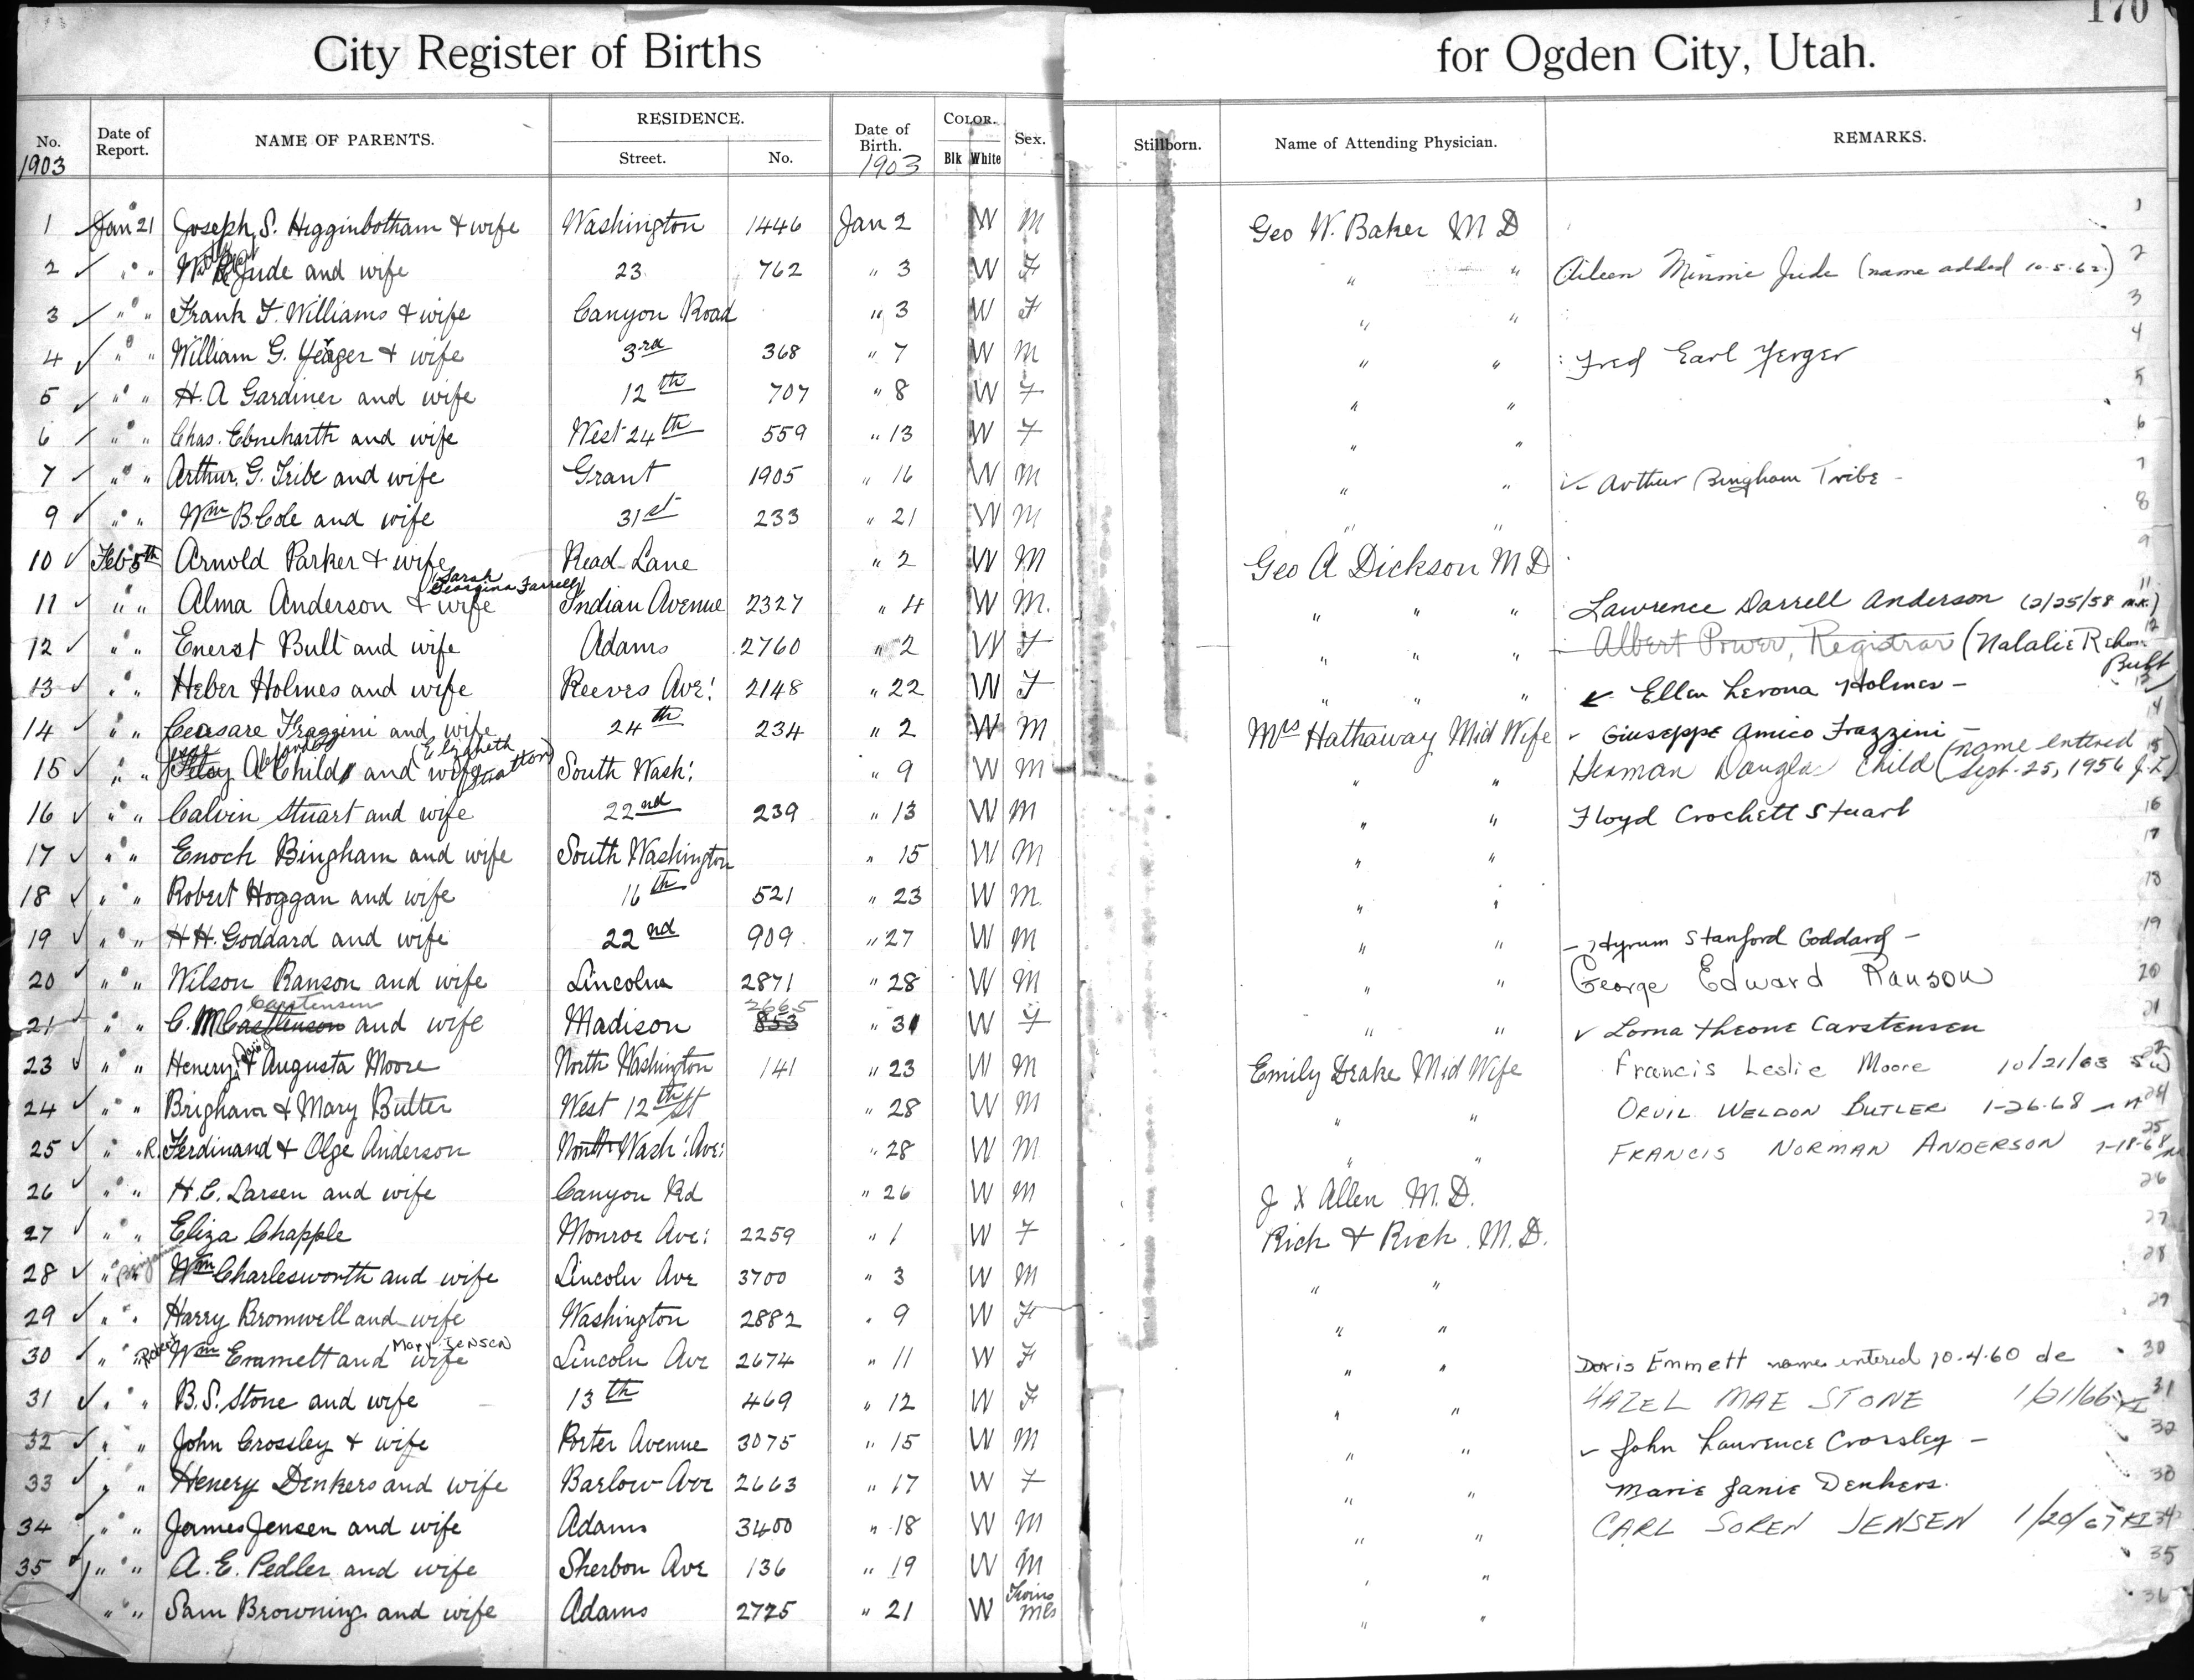 170
City Register of Births for Ogden City, Utah.
No. Date of Report. NAME OF PARENTS. RESIDENCE. Street. No. Date of Birth. COLOR. Blk White Sex. Stillborn. Name of Attending Physician. REMARKS.
1903 1903
1 Jan 21 Joseph S. Higginbotham & wife Washington 1446 Jan 2 W M Geo W. Baker M D 1
2 ✓ " " W Jude and wife 23 762 " 3 W F " " Aileen Minnie Jude (name added 10.5.62.) 2
3 ✓ " " Frank F. Williams & wife Canyon Road " 3 W F " " 3
4 ✓ " " William G. Yerger & wife 3rd 368 " 7 W M " " Fred Earl Yerger 4
5 ✓ " " H. A Gardiner and wife 12th 707 " 8 W F " " 5
6 ✓ " " Chas. Ebneharth and wife West 24th 559 " 13 W F " " 6
7 ✓ " " Arthur. G. Tribe and wife Grant 1905 " 16 W M " " ✓ Arthur Bingham Tribe - 7
9 ✓ " " Wm B. Cole and wife 31st 233 " 21 W M " " 8
10 ✓ Feb 5th Arnold Parker & wife Read Lane " 2 W M Geo A Dickson M D 9
(Sarah Georgina Farrell)
11 ✓ " " Alma Anderson & wife Indian Avenue 2327 " 4 W M. " " " Lawrence Darrell Anderson (2/25/58 M.K.) 11
12 ✓ " " Enerst Bult and wife Adams 2760 " 2 W F " " " Albert Power, Registrar (Natalie Bult) 12
13 ✓ " " Heber Holmes and wife Reeves Ave: 2148 " 22 W F " " " ✓ Ellen Levona Holmes - 13
14 ✓ " " Ceasare Fraggini and wife 24th 234 " 2 W M Mrs Hathaway Mid Wife ✓ Giuseppe Amico Frazzini - 14
(Elizabeth Stratton)
15 ✓ " " A Child and wife South Wash: " 9 W M " " Herman Douglas Child (name entered Sept. 25, 1956 J.I.) 15
16 ✓ " " Calvin Stuart and wife 22nd 239 " 13 W M " " Floyd Crochett Stuart 16
17 ✓ " " Enoch Bingham and wife South Washington " 15 W M " " 17
18 ✓ " " Robert Hoggan and wife 16th 521 " 23 W M. " " 18
19 ✓ " " H H. Goddard and wife 22nd 909 " 27 W M " " - Hyrum Stanford Goddard - 19
20 ✓ " " Wilson Ranson and wife Lincoln 2871 " 28 W M " " George Edward Ranson 20
Carstensen 2665
21 ✓ " " C. M and wife Madison 853 " 31 W F " " ✓ Lorna Theone Carstensen 21
23 ✓ " " Henery & Augusta Moore North Washington 141 " 23 W M Emily Drake Mid Wife Francis Leslie Moore 10/21/63
24 ✓ " " Brigham & Mary Bulter West 12th St " 28 W M " " Orvil Weldon Butler 1-26-68 24
25 ✓ " " R. Ferdinand & Olge Anderson North Wash: Ave: " 28 W M " " Francis Norman Anderson 25
26 ✓ " " H. C. Larsen and wife Canyon Rd " 26 W M J X Allen M. D. 26
27 ✓ " " Eliza Chapple Monroe Ave: 2259 " 1 W F Rich & Rich. M. D. 27
Benjamin
28 ✓ " " Wm Charlesworth and wife Lincoln Ave 3700 " 3 W M " " 28
29 ✓ " " Harry Bromwell and wife Washington 2882 " 9 W F " " 29
Robert Mary Jensen
30 ✓ " " Wm Emmett and wife Lincoln Ave 2674 " 11 W F " " Doris Emmett name entered 10.4.60 de 30
31 ✓ " " B. S. Stone and wife 13th 469 " 12 W F " " HAZEL MAE STONE 31
32 ✓ " " John Crossley & wife Porter Avenue 3075 " 15 W M " " ✓ John Laurence Crossley - 32
33 ✓ " " Henery Denkers and wife Barlow Ave 2663 " 17 W F " " Marie Janie Denkers. 33
34 ✓ " " James Jensen and wife Adams 3400 " 18 W M " " CARL SOREN JENSEN 1/20/67 34
35 ✓ " " A. E. Pedler and wife Sherbon Ave 136 " 19 W M " " 35
" " Sam Browning and wife Adams 2725 " 21 W Twins Mls " " 36